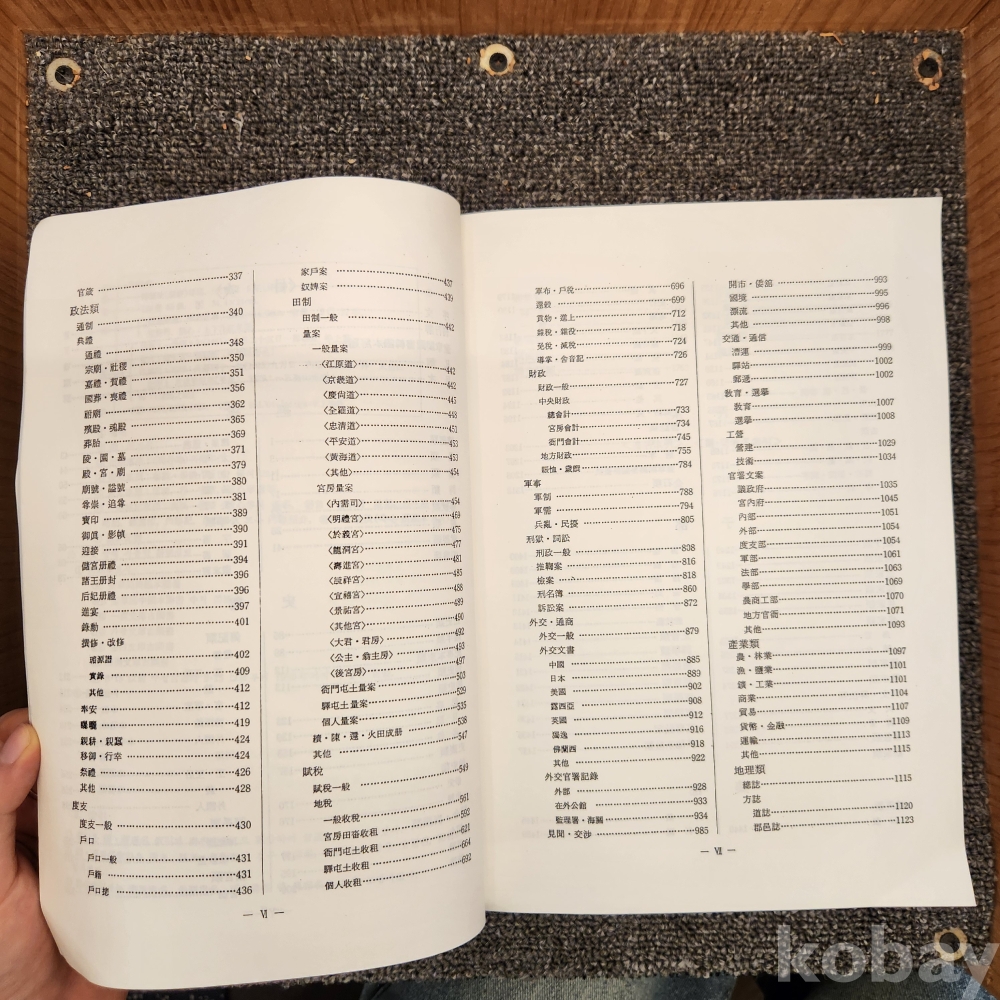 官箴 337
政法類
通制 340
典禮
通禮 348
宗廟・社稷 350
嘉禮・賀禮 351
國葬・喪禮 356
祔廟 362
殯殿・魂殿 365
葬胎 369
陵・園・墓 371
殿・宮・廟 379
廟號・諡號 380
尊崇・追尊 381
寶印 389
御眞・影幀 390
迎接 391
儲宮册禮 394
諸王册封 396
后妃册禮 396
進宴 397
錄勳 401
撰修・改修
璿源譜 402
實錄 409
其他 412
奉安 412
曬曝 419
親耕・親蠶 424
移御・行幸 424
祭禮 426
其他 428
度支
度支一般 430
戶口
戶口一般 431
戶籍 431
戶口摠 436
家戶案 437
奴婢案 439
田制
田制一般 442
量案
一般量案
〈江原道〉 442
〈京畿道〉 442
〈慶尙道〉 445
〈全羅道〉 448
〈忠清道〉 451
〈平安道〉 453
〈黃海道〉 453
〈其他〉 454
宮房量案
〈內需司〉 454
〈明禮宮〉 469
〈於義宮〉 475
〈龍洞宮〉 477
〈壽進宮〉 481
〈毓祥宮〉 485
〈宣禧宮〉 488
〈景祐宮〉 489
〈其他宮〉 490
〈大君・君房〉 492
〈公主・翁主房〉 493
〈後宮房〉 497
衙門屯土量案 503
驛屯土量案 529
個人量案 535
續・陳・還・火田成册 538
其他 547
賦稅
賦稅一般 549
地稅
一般收稅 561
宮房田畓收租 592
衙門屯土收租 621
驛屯土收租 664
個人收租 692
— Ⅵ —
軍布・戶稅 696
還穀 699
貢物・進上 712
雜稅・雜役 718
免稅・減稅 724
導掌・舍音記 726
財政
財政一般 727
中央財政
總會計 733
宮房會計 734
衙門會計 745
地方財政 755
賑恤・歲饌 784
軍事
軍制 788
軍需 794
兵亂・民擾 805
刑獄・詞訟
刑政一般 808
推鞫案 816
檢案 818
刑名簿 860
訴訟案 872
外交・通商
外交一般 879
外交文書
中國 885
日本 889
美國 902
露西亞 908
英國 912
獨逸 916
佛蘭西 918
其他 922
外交官署記錄
外部 928
在外公館 933
監理署・海關 934
見聞・交涉 985
開市・倭館 993
國境 995
漂流 996
其他 998
交通・通信
漕運 999
驛站 1002
郵遞 1002
敎育・選擧
敎育 1007
選擧 1008
工營
營建 1029
技術 1034
官署文案
議政府 1035
宮內府 1045
內部 1051
外部 1054
度支部 1054
軍部 1061
法部 1063
學部 1069
農商工部 1070
地方官衙 1071
其他 1093
產業類
農・林業 1097
漁・鹽業 1101
鑛・工業 1101
商業 1104
貿易 1107
貨幣・金融 1109
運輸 1113
其他 1115
地理類
總誌 1115
方誌
道誌 1120
郡邑誌 1123
— Ⅶ —
kobay